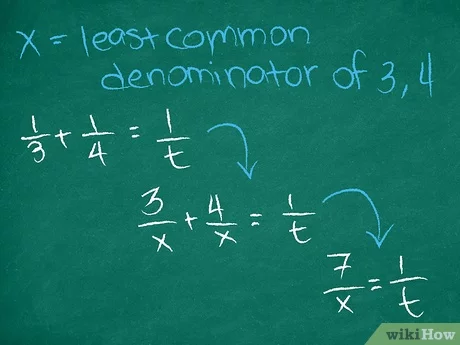 x = least common
denominator of 3, 4
1/3 + 1/4 = 1/t
3/x + 4/x = 1/t
7/x = 1/t
wikiHow